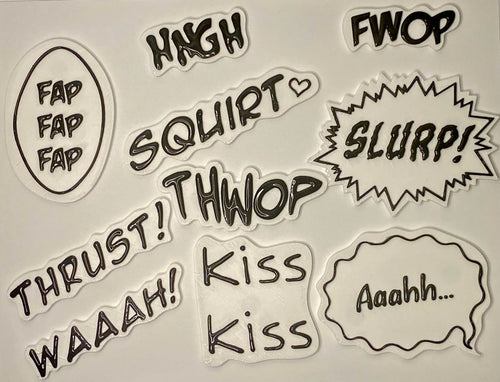 HNGH
FWOP
FAP
FAP
FAP
SQUIRT♡
SLURP!
THWOP
THRUST!
Kiss
Kiss
Aaahh...
WAAAH!